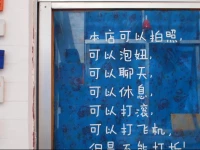 本店可以拍照,
可以泡妞,
可以聊天,
可以休息,
可以打滚,
可以打飞机,
但是不能打折!